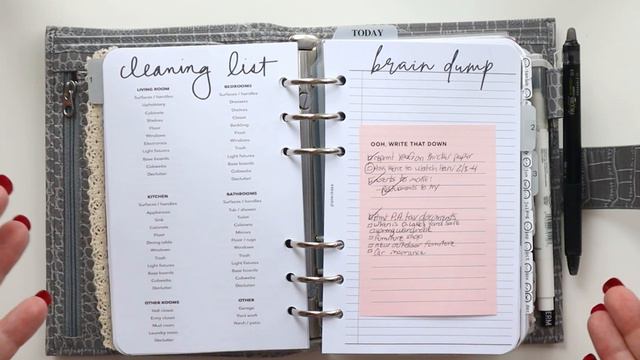 TODAY
cleaning list
LIVING ROOM
Surfaces / handles
Upholstery
Cabinets
Shelves
Floor
Windows
Electronics
Light fixtures
Base boards
Cobwebs
Declutter
BEDROOMS
Surfaces / handles
Dressers
Shelves
Closet
Bedding
Floor
Windows
Trash
Light fixtures
Base boards
Cobwebs
Declutter
KITCHEN
Surfaces / handles
Appliances
Sink
Cabinets
Floor
Dining table
Windows
Trash
Light fixtures
Base boards
Cobwebs
Declutter
BATHROOMS
Tub / shower
Toilet
Cabinets
Mirrors
Floor / rugs
Windows
Trash
Light fixtures
Base boards
Cobwebs
Declutter
OTHER ROOMS
Hall closet
Entry closet
Mud room
Laundry room
Declutter
OTHER
Garage
Yard work
Wash / patio
brain dump
OOH, WRITE THAT DOWN
on thicker paper
to watch
to
tax documents
furniture
new outdoor furniture
car insurance
2
3